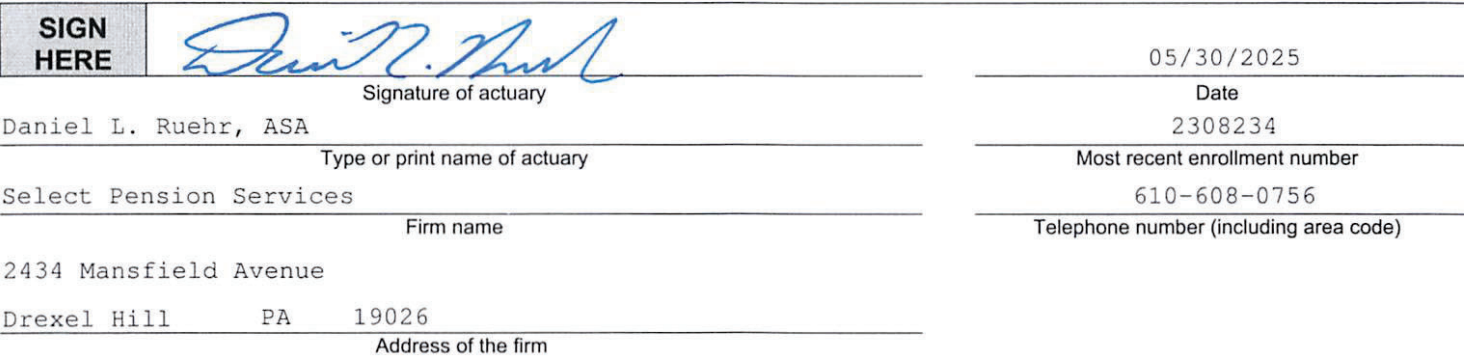 SIGN
HERE
05/30/2025
Signature of actuary
Date
Daniel L. Ruehr, ASA
2308234
Type or print name of actuary
Most recent enrollment number
Select Pension Services
610-608-0756
Firm name
Telephone number (including area code)
2434 Mansfield Avenue
Drexel Hill PA 19026
Address of the firm